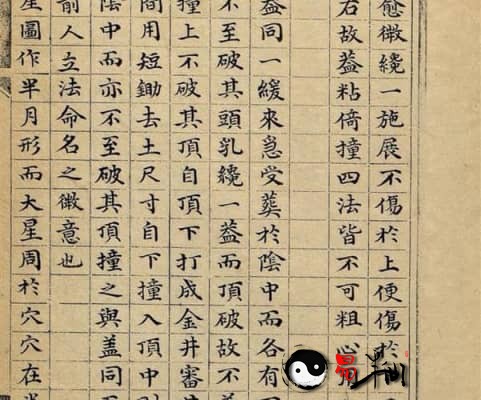 愈微纔一施展不傷於上便傷於
右故葢粘倚撞四法皆不可粗心
葢同一緩來急受葬於陰中而各有
不至破其頭乳纔一葢而頂破故不
撞上不破其頂自頂下打成金井審
間用短鋤去土尺寸自下撞入頂中
陰中而亦不至破其頂撞之與盖同
前人立法命名之微意也
星圖作半月形而大星周於穴穴在